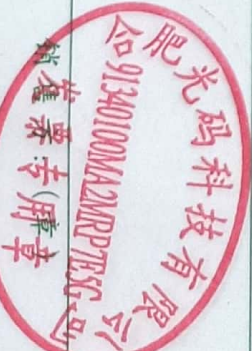 合肥光码科技有限公司
91340100MA2MRP7E5G
发票专用章
销售